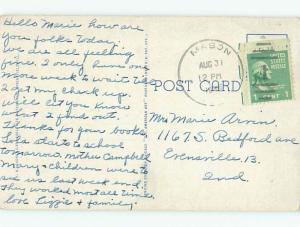 Hello Marie how are
you folks today,
we are all feeling
fine. I only have one
more week to wait till
I get my check up.
will let you know
what I find out.
thanks for your books,
Lola starts to school
tomorrow. Mother Campbell
Mary & children were to
see us last week end.
they worked most all time.
love Lizzie & family.
MASON
AUG 31
12 PM
POST CARD
UNITED STATES POSTAGE
1¢
Mrs Marie Arvin.
1167 S. Bedford ave
Evansville. 13.
Ind.